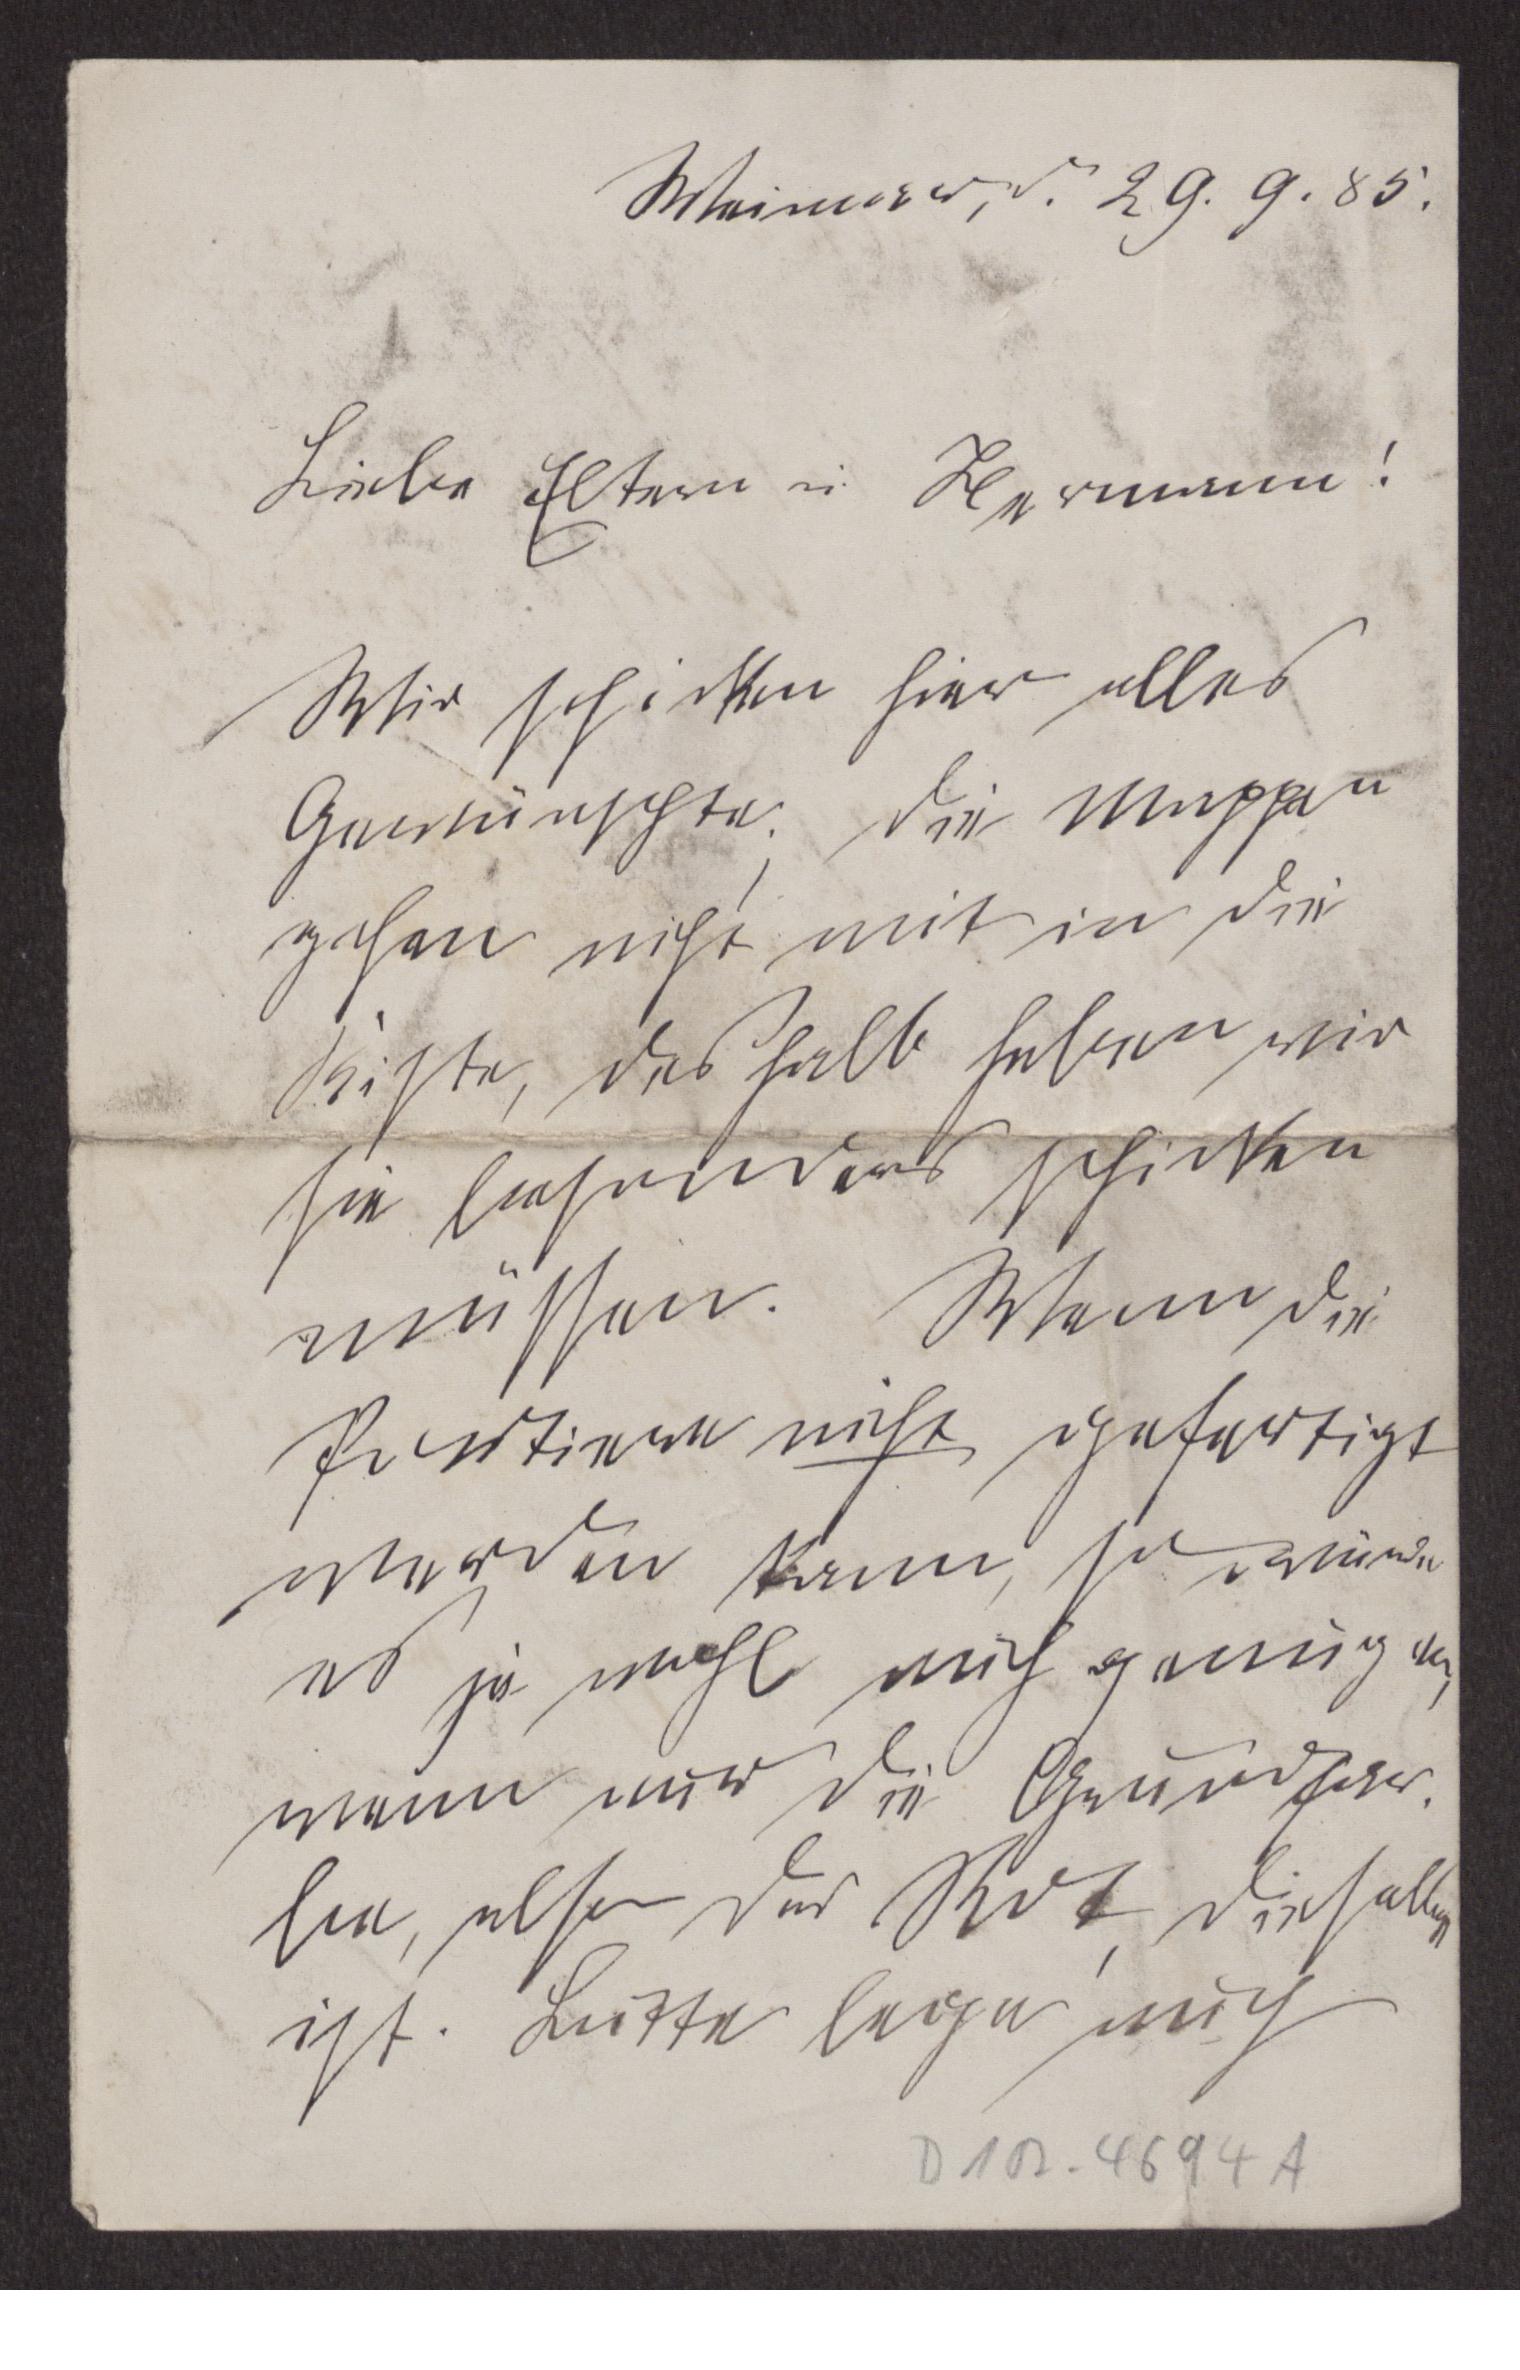 Weimar, d. 29. 9. 85.
Liebe Eltern u Hermann!
Wir schicken hier alles
Gewünschte; die Mappen
gehen nicht mit in die
Kiste, deshalb haben wir
sie besonders schicken
müssen. Wenn die
Portiere nicht gefertigt
werden kann, so würde
es ja wohl auch genügen,
wenn nur die Grundfar-
be, also das Rot, dieselbe
ist. Lutte lege auch
D 102. 4694 A